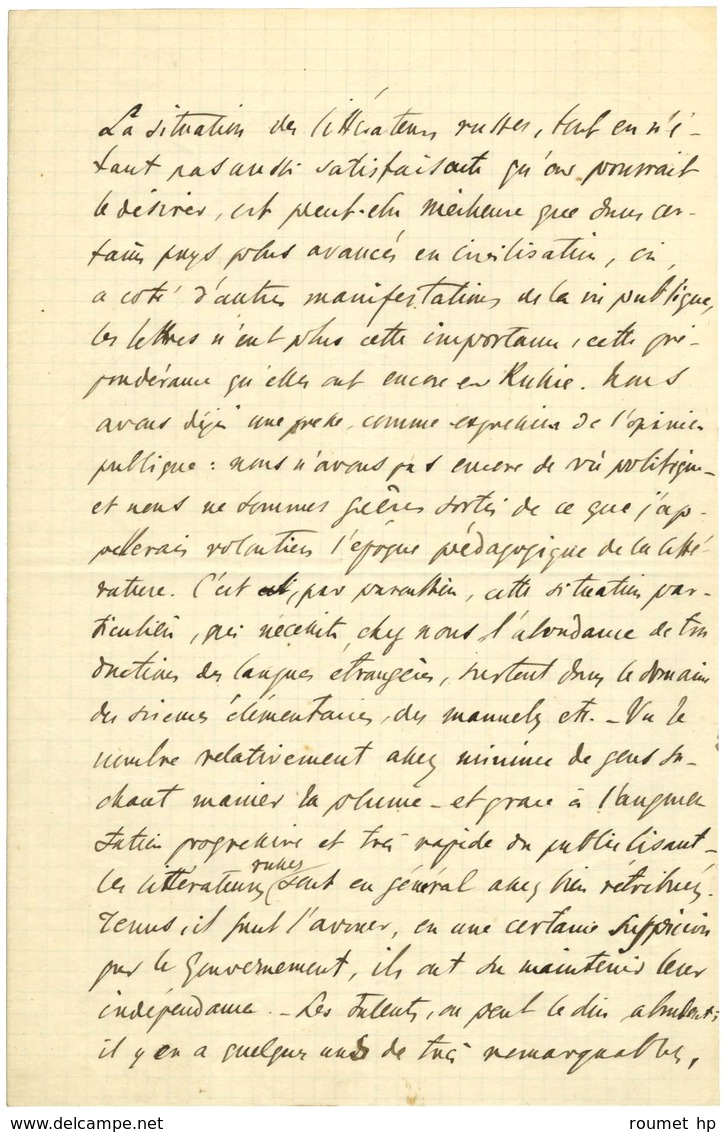 La situation des littérateurs russes, tout en n'é-
tant pas aussi satisfaisante qu'on pourrait
le désirer, est peut-être meilleure que dans cer-
tains pays plus avancés en civilisation, où,
a coté d'autres manifestations de la vie publique,
les lettres n'ont plus cette importance, cette pré-
pondérance qu'elles ont encore en Russie. Nous
avons déjà une presse, comme expression de l'opinion
publique: nous n'avons pas encore de vie politique-
et nous ne sommes guères sortis de ce que j'ap-
pellerais volontiers l'époque pédagogique de la litté-
rature. C'est, par parenthèse, cette situation par-
ticulière, qui nécessite, chez nous l'abondance de tra
ductions des langues étrangères, surtout dans le domaine
des sciences élémentaires, des manuels, etc. - Vu le
nombre relativement assez minime de gens sa-
chant manier la plume - et grace à l'augmen
tation progressive et très rapide du public lisant -
les littérateurs russes sont en général assez bien rétribués.
Tenus, il faut l'avouer, en une certaine suspicion
par le Gouvernement, ils ont su maintenir leur
indépendance. - Les talents, on peut le dire, abondent;
il y en a quelques uns de très remarquables,
roumet hp